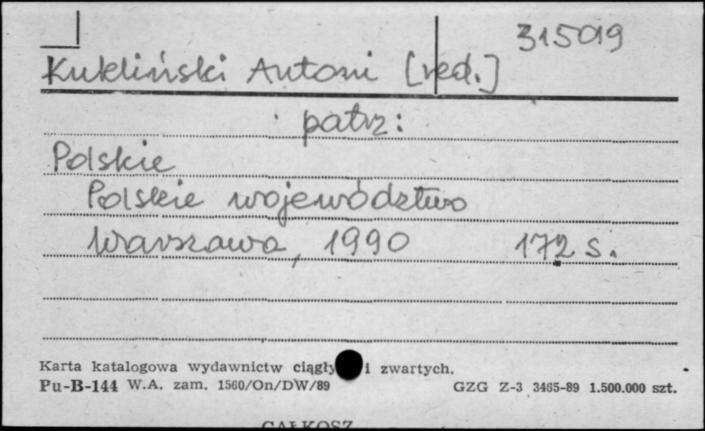 315019
Kukliński Antoni [red.]
patrz:
Polskie
Polskie województwo
Warszawa, 1990 172 s.
Karta katalogowa wydawnictw ciągły i zwartych.
Pu-B-144 W.A. zam. 1560/On/DW/89 GZG Z-3 3465-89 1.500.000 szt.